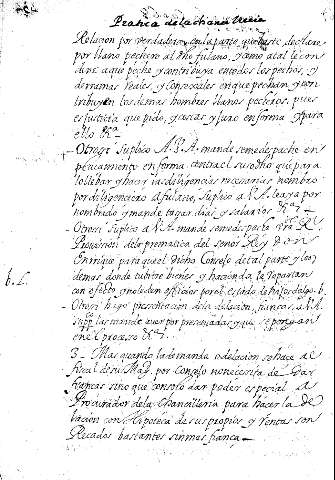 Practica de la chancilleria
Relacion por verdadera en la parte que baste declare
por llano pechero al dho fulano, y como atal le con
dene a que peche y contribuya en todos los pechos, y
derramas reales, y conçexales en que pechan, y con
tribuyen los demas hombres llanos pecheros, pues
es justicia que pido, y costas y Iuro en forma, y para
ello &ra
Otrosi Suplico A. V. A. mande se me despache en
plaçamiento en forma contra el susodho que para
lo llebar y hacer las diligencias necesarias nombro
por diligenciero a fulano, Suplico a V. A. le aya por
nombrado y mande tasar dias y salarios &ra
Otrosi Suplico a V. A. mande se me despache Vra Rl
Provission de la prematica del Señor Rey Don
Enrrique para que el Dicho Concejo de tal parte y los
demas donde tubiere bienes y hacienda le repartan
con efecto y no le den officios por el estado de hijos dalgo.
b. L.
Otrosi hago presentacion de la delacion, fianças, a V. A.
Suppco las mande aver por presentadas y que se pongan
en el proceso &ra
3 - Mas quando la demanda o delacion se hace al
fiscal de su Magd. por Consejo no necesita de dar
fianças sino que con solo dar poder especial a
Procurador de la Chancilleria para hacer la de
lacion con Hipoteca de sus propios y rentas son
Recados bastantes sin mas fiança